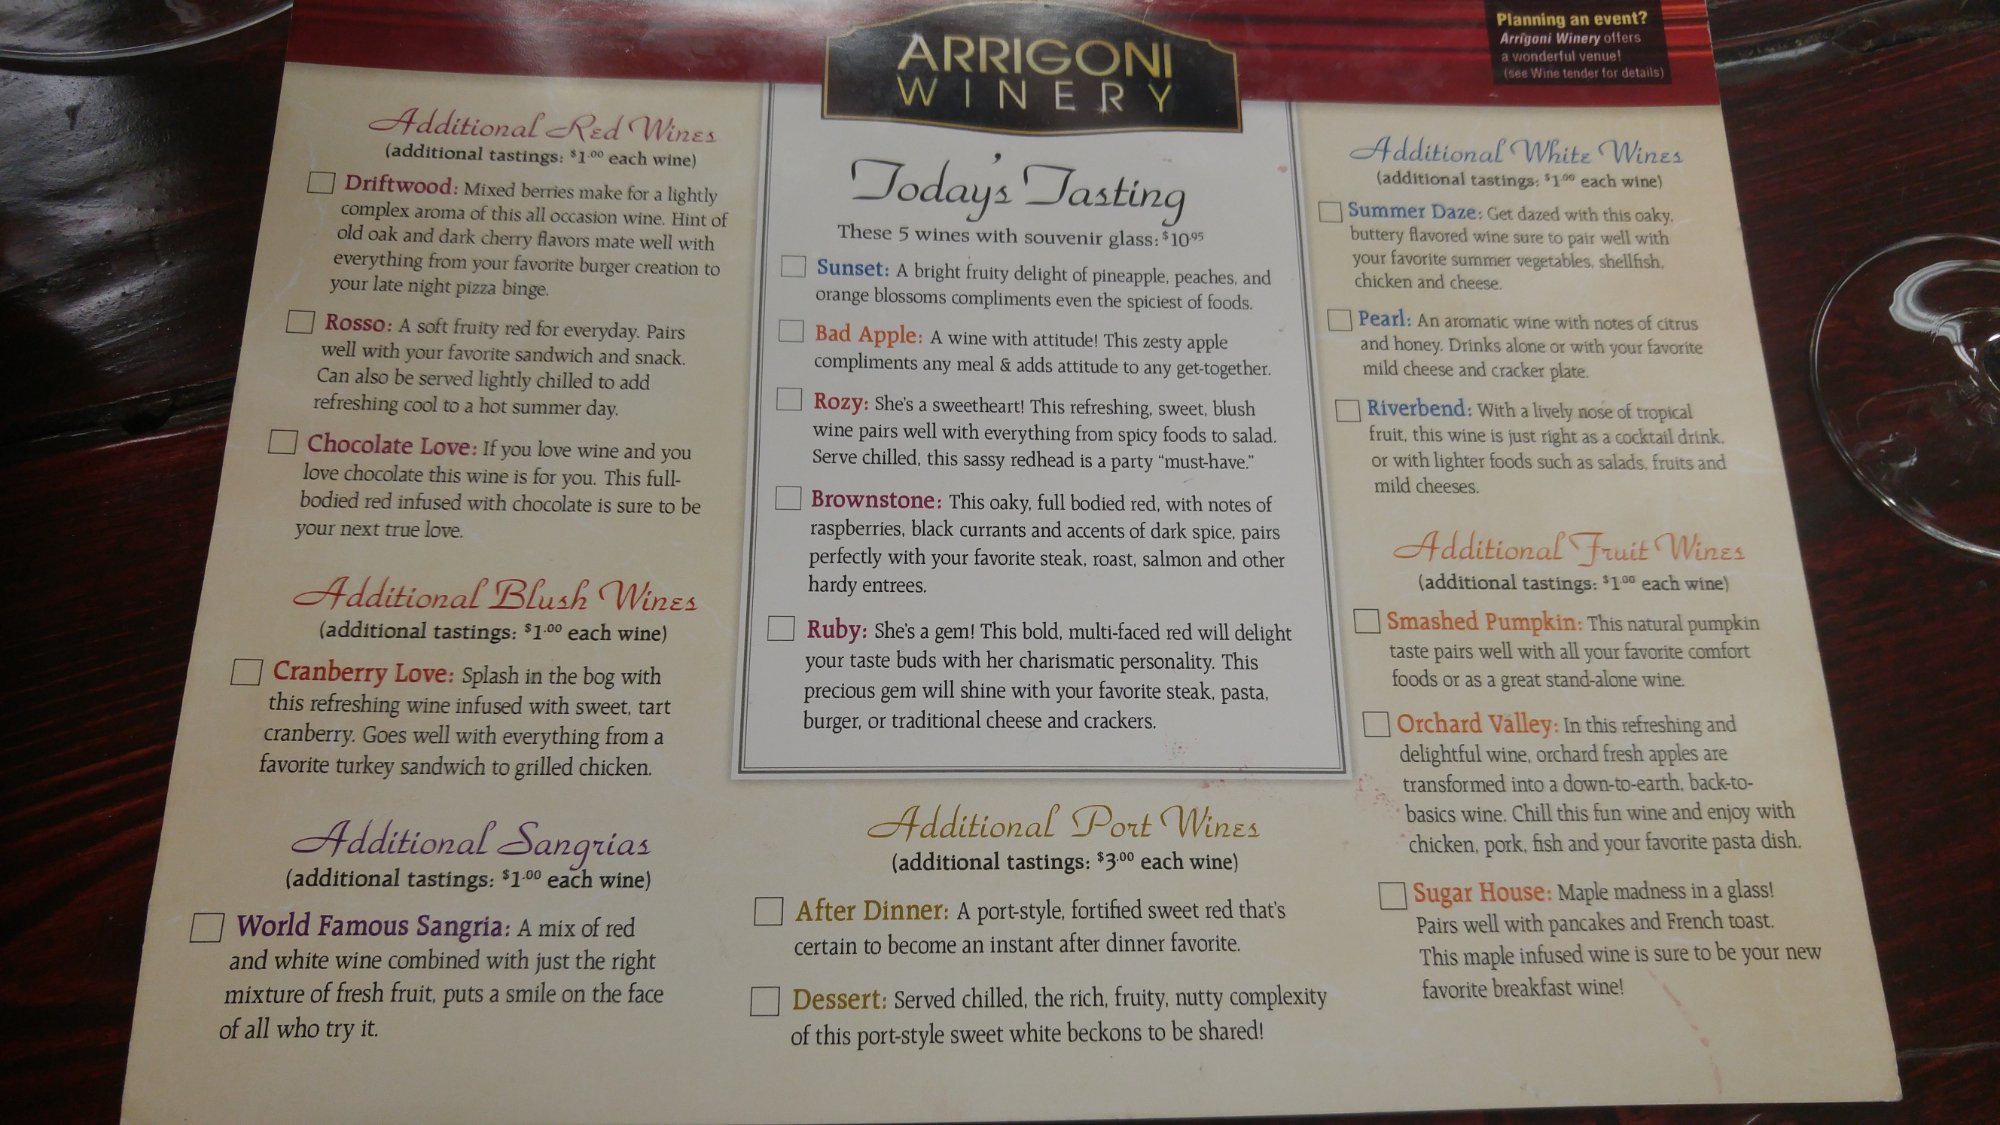 Planning an event?
Arrigoni Winery offers
a wonderful venue!
(see Wine tender for details)
ARRIGONI
WINERY
Additional Red Wines
(additional tastings: $1.00 each wine)
Driftwood: Mixed berries make for a lightly
complex aroma of this all occasion wine. Hint of
old oak and dark cherry flavors mate well with
everything from your favorite burger creation to
your late night pizza binge.
Rosso: A soft fruity red for everyday. Pairs
well with your favorite sandwich and snack.
Can also be served lightly chilled to add
refreshing cool to a hot summer day.
Chocolate Love: If you love wine and you
love chocolate this wine is for you. This full-
bodied red infused with chocolate is sure to be
your next true love.
Additional Blush Wines
(additional tastings: $1.00 each wine)
Cranberry Love: Splash in the bog with
this refreshing wine infused with sweet, tart
cranberry. Goes well with everything from a
favorite turkey sandwich to grilled chicken.
Additional Sangrias
(additional tastings: $1.00 each wine)
World Famous Sangria: A mix of red
and white wine combined with just the right
mixture of fresh fruit, puts a smile on the face
of all who try it.
Today's Tasting
These 5 wines with souvenir glass: $10.95
Sunset: A bright fruity delight of pineapple, peaches, and
orange blossoms compliments even the spiciest of foods.
Bad Apple: A wine with attitude! This zesty apple
compliments any meal & adds attitude to any get-together.
Rozy: She's a sweetheart! This refreshing, sweet, blush
wine pairs well with everything from spicy foods to salad.
Serve chilled, this sassy redhead is a party "must-have."
Brownstone: This oaky, full bodied red, with notes of
raspberries, black currants and accents of dark spice, pairs
perfectly with your favorite steak, roast, salmon and other
hardy entrees.
Ruby: She's a gem! This bold, multi-faced red will delight
your taste buds with her charismatic personality. This
precious gem will shine with your favorite steak, pasta,
burger, or traditional cheese and crackers.
Additional Port Wines
(additional tastings: $3.00 each wine)
After Dinner: A port-style, fortified sweet red that's
certain to become an instant after dinner favorite.
Dessert: Served chilled, the rich, fruity, nutty complexity
of this port-style sweet white beckons to be shared!
Additional White Wines
(additional tastings: $1.00 each wine)
Summer Daze: Get dazed with this oaky,
buttery flavored wine sure to pair well with
your favorite summer vegetables, shellfish,
chicken and cheese.
Pearl: An aromatic wine with notes of citrus
and honey. Drinks alone or with your favorite
mild cheese and cracker plate.
Riverbend: With a lively nose of tropical
fruit, this wine is just right as a cocktail drink,
or with lighter foods such as salads, fruits and
mild cheeses.
Additional Fruit Wines
(additional tastings: $1.00 each wine)
Smashed Pumpkin: This natural pumpkin
taste pairs well with all your favorite comfort
foods or as a great stand-alone wine.
Orchard Valley: In this refreshing and
delightful wine, orchard fresh apples are
transformed into a down-to-earth, back-to-
basics wine. Chill this fun wine and enjoy with
chicken, pork, fish and your favorite pasta dish.
Sugar House: Maple madness in a glass!
Pairs well with pancakes and French toast.
This maple infused wine is sure to be your new
favorite breakfast wine!